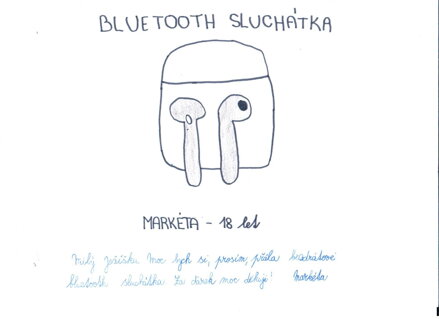 BLUETOOTH SLUCHÁTKA
MARKÉTA - 18 let
Milý Ježíšku Moc bych si, prosím, přála bezdrátové
bluetooth sluchátka Za dárek moc děkuji! Markéta